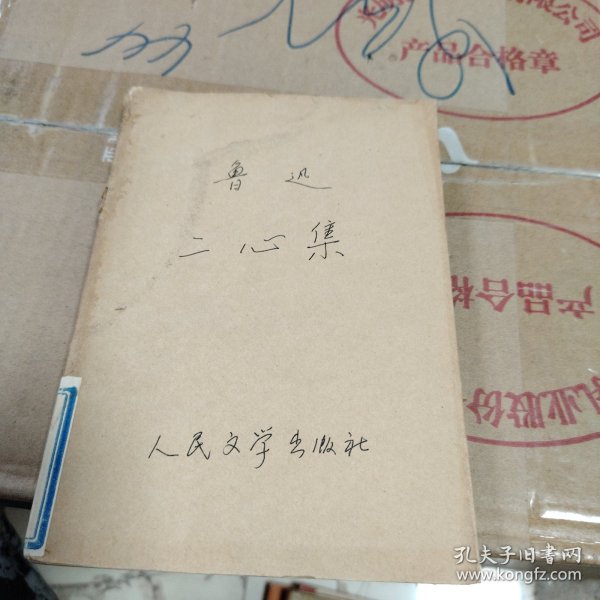 有限公司
产品合格章
鲁迅
二心集
产品合格
乳业股份
人民文学出版社
孔夫子旧书网
www.kongfz.com